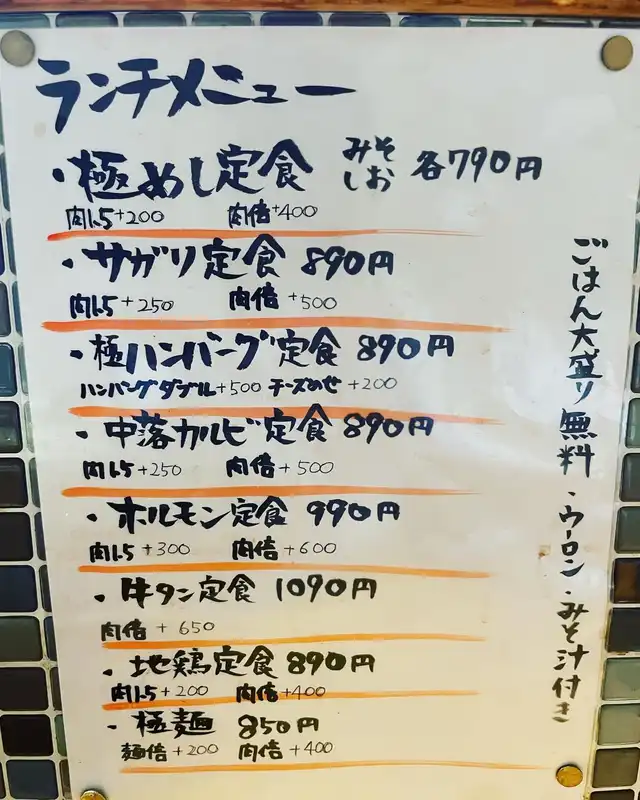 ランチメニュー
・極めし定食 みそ しお 各790円
肉1.5+200 肉倍+400
・サガリ定食 890円
肉1.5+250 肉倍+500
・極ハンバーグ定食 890円
ハンバーグダブル+500 チーズのせ+200
・中落カルビ定食 890円
肉1.5+250 肉倍+500
・ホルモン定食 990円
肉1.5+300 肉倍+600
・牛タン定食 1090円
肉倍+650
・地鶏定食 890円
肉1.5+200 肉倍+400
・極麺 850円
麺倍+200 肉倍+400
ごはん大盛り無料・ウーロン・みそ汁付き